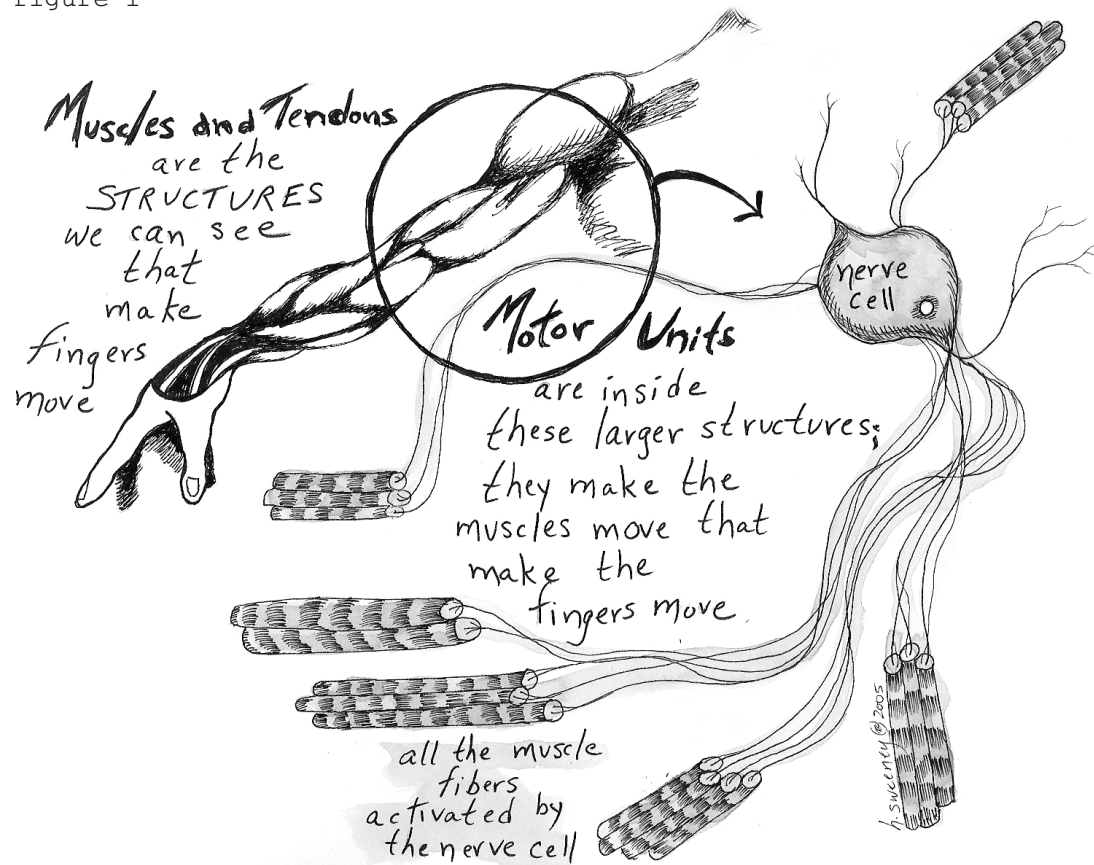 Figure 1
Muscles and Tendons
are the
STRUCTURES
we can see
that
make
fingers
move
nerve
cell
Motor Units
are inside
these larger structures;
they make the
muscles move that
make the
fingers move
all the muscle
fibers
activated by
the nerve cell
h. sweeney © 2005